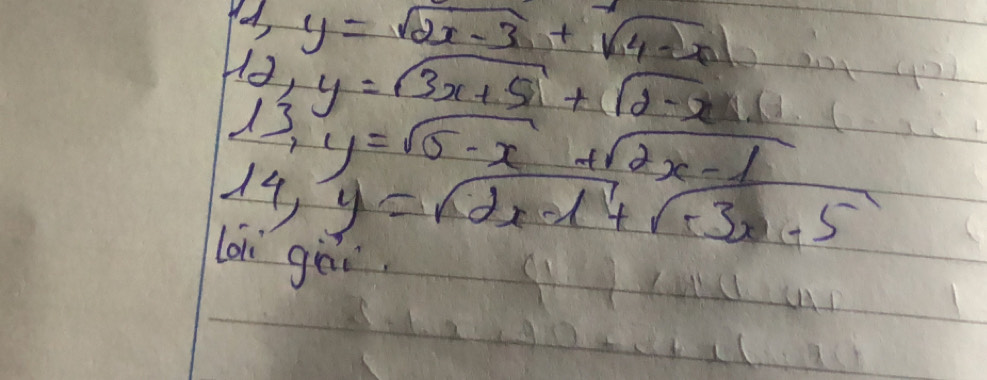 11, y = √(2x-3) + √(4-x)
12, y = √(3x+5) + √(2-x)
13, y = √(5-x) + √(2x-1)
14, y = √(2x-1) + √(-3x-5)
lời giải.